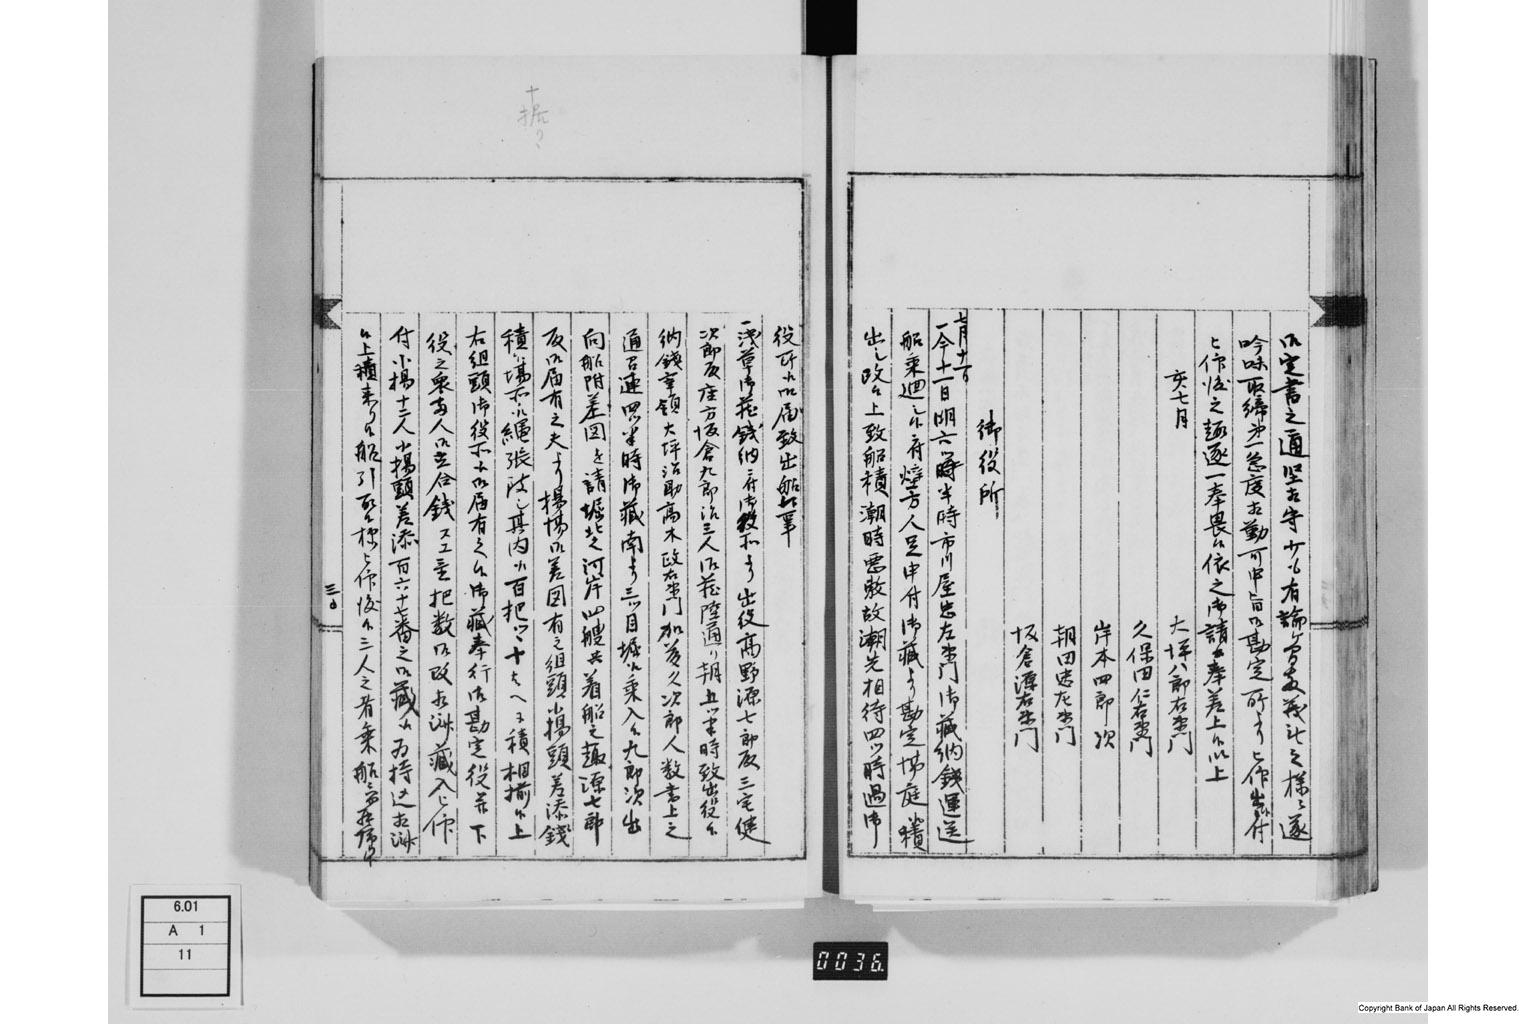 御定書之通堅相守少も有論ヶ間敷義無之様ニ遂
吟味取締第一急度相勤可申旨御勘定所より被仰出候付
被仰渡之趣逐一奉畏候依之御請書奉差上候以上
亥七月
大坪八郎右衛門
久保田仁右衛門
岸本四郎次
朝田忠左衛門
坂倉源右衛門
御役所
七月十一日
一今十一日明六ツ時半時市川屋忠左衛門御蔵納銭運送
船乗廻し候ニ付燈方人足申付御蔵より勘定場庭積
出し改候上致船積潮時悪敷故潮先相待四ツ時過御
役所江御届致出船候事
一浅草御蔵銭納ニ付御役所より出役高野源七郎殿三宅健
次郎殿座方坂倉九郎治三人御蔵陸通り朝五ツ半時致出役候
納銭宰領大坪治助高木政右衛門加藤久次郎人数書上之
通召連四ツ半時御蔵南より三ツ目堀江乗入候九郎次出
向船附差図を請堀北之河岸四艘共着船之趣源七郎
殿御届有之夫より揚場御差図有之組頭小揚頭差添銭
積候場所江縄張致し其内江百把ツヽ十ト八ヘニ積相揃候上
右組頭御役所江御届有之候御蔵奉行御勘定役并下
役之衆両人御立合銭ヌ工立把数御改相済蔵入被仰
付小揚十二人小揚頭差添百六十七番之御蔵江為持込相済
候上積来り候船引取候様被仰渡候三人之者乗船ニ而罷帰申
三日
十
拠
6.01
A 1
11
0036.
Copyright Bank of Japan All Rights Reserved.